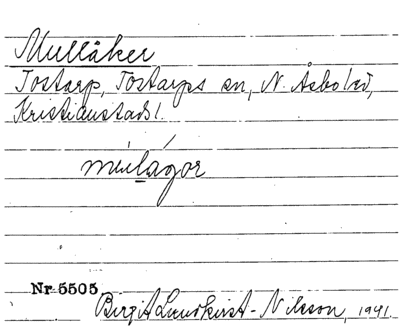 Mullåker
Tostarp, Tostarps sn, N. Åsbo hd,
Kristianstads l.
mùlágor
Nr 5505
Birgit Lundkvist-Nilsson, 1941.